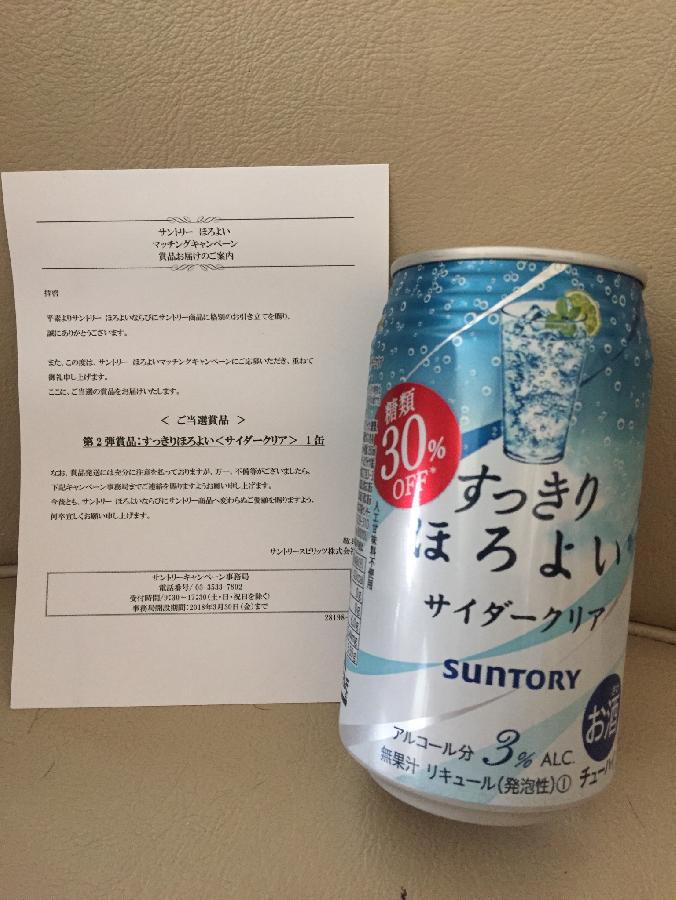 サントリー ほろよい
マッチングキャンペーン
賞品お届けのご案内
拝啓
平素よりサントリー ほろよいならびにサントリー商品に格別のお引き立てを賜り、
誠にありがとうございます。
また、この度は、サントリー ほろよいマッチングキャンペーンにご応募いただき、重ねて
御礼申し上げます。
ここに、ご当選の賞品をお届けいたします。
＜ ご当選賞品 ＞
第2弾賞品：すっきりほろよい＜サイダークリア＞ 1缶
なお、賞品発送には充分に注意を払っておりますが、万一、不備等がございましたら、
下記キャンペーン事務局までご連絡を賜りますようお願い申し上げます。
今後とも、サントリー ほろよいならびにサントリー商品へ変わらぬご愛顧を賜りますよう、
何卒宜しくお願い申し上げます。
サントリースピリッツ株式会
サントリーキャンペーン事務局
電話番号/ 03-3533-7802
受付時間/9:30～17:30(土・日・祝日を除く)
事務局開設期間：2018年3月30日(金)まで
28198-
糖類
30%
OFF*
人工甘味料不使用
すっきり
ほろよい
サイダークリア
SUNTORY
お酒
アルコール分 3% ALC.
チューハイ
無果汁 リキュール(発泡性)①